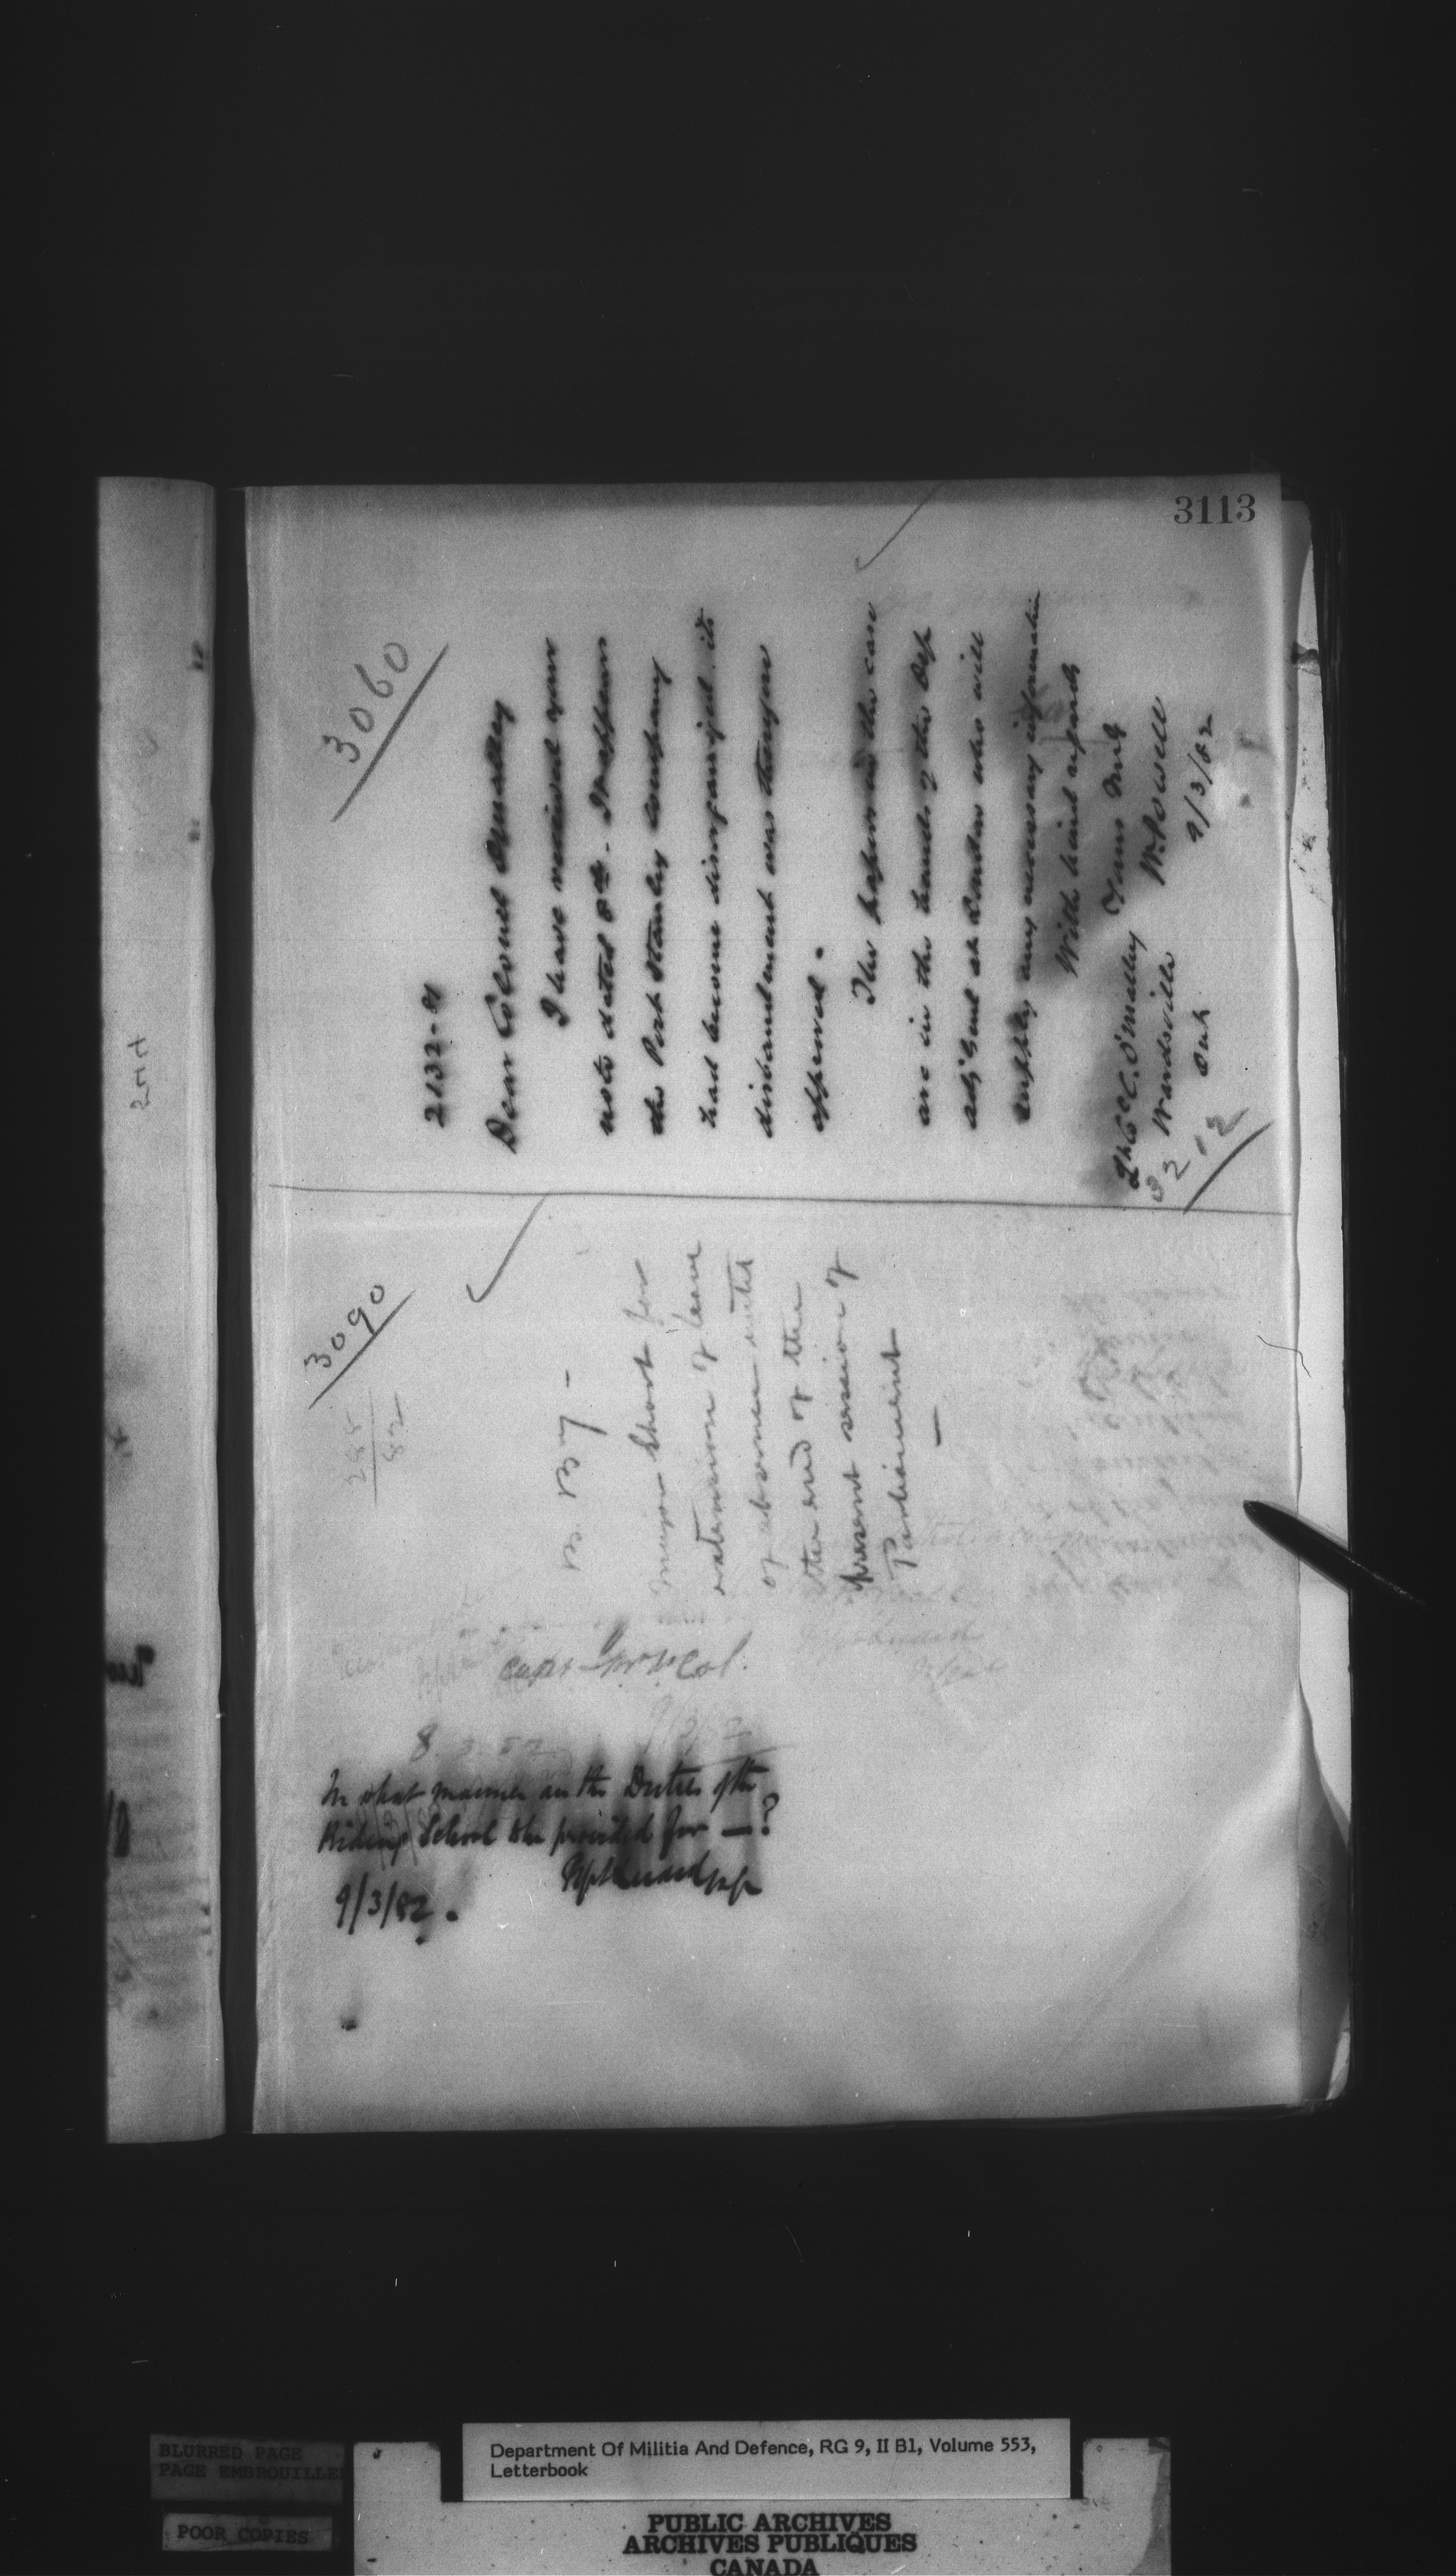 3113
3060
2132-81
Dear Colonel O'Malley
I have received your
note dated 8th - It appears
the Port Stanley Company
had become disorganized. its
disbandment was therefore
approved.
The papers in the case
are in the hands of the Dep
Adj Genl at London who will
supply any necessary information
With kind regards
Yours truly
W. Powell
9/3/82
Lt Col. C. O'Malley
Wardsville
Ont
3212
3090
288
82
B. By -
Major Short for
extension of leave
of absence until
the end of the
present session of
Parliament
—
Capt & Lt Col.
8.3.82
9/3/82
In what manner are the Duties of the
Riding School to be provided for — ?
9/3/82.
BLURRED PAGE
PAGE EMBROUILLEE
POOR COPIES
Department Of Militia And Defence, RG 9, II B1, Volume 553,
Letterbook
PUBLIC ARCHIVES
ARCHIVES PUBLIQUES
CANADA